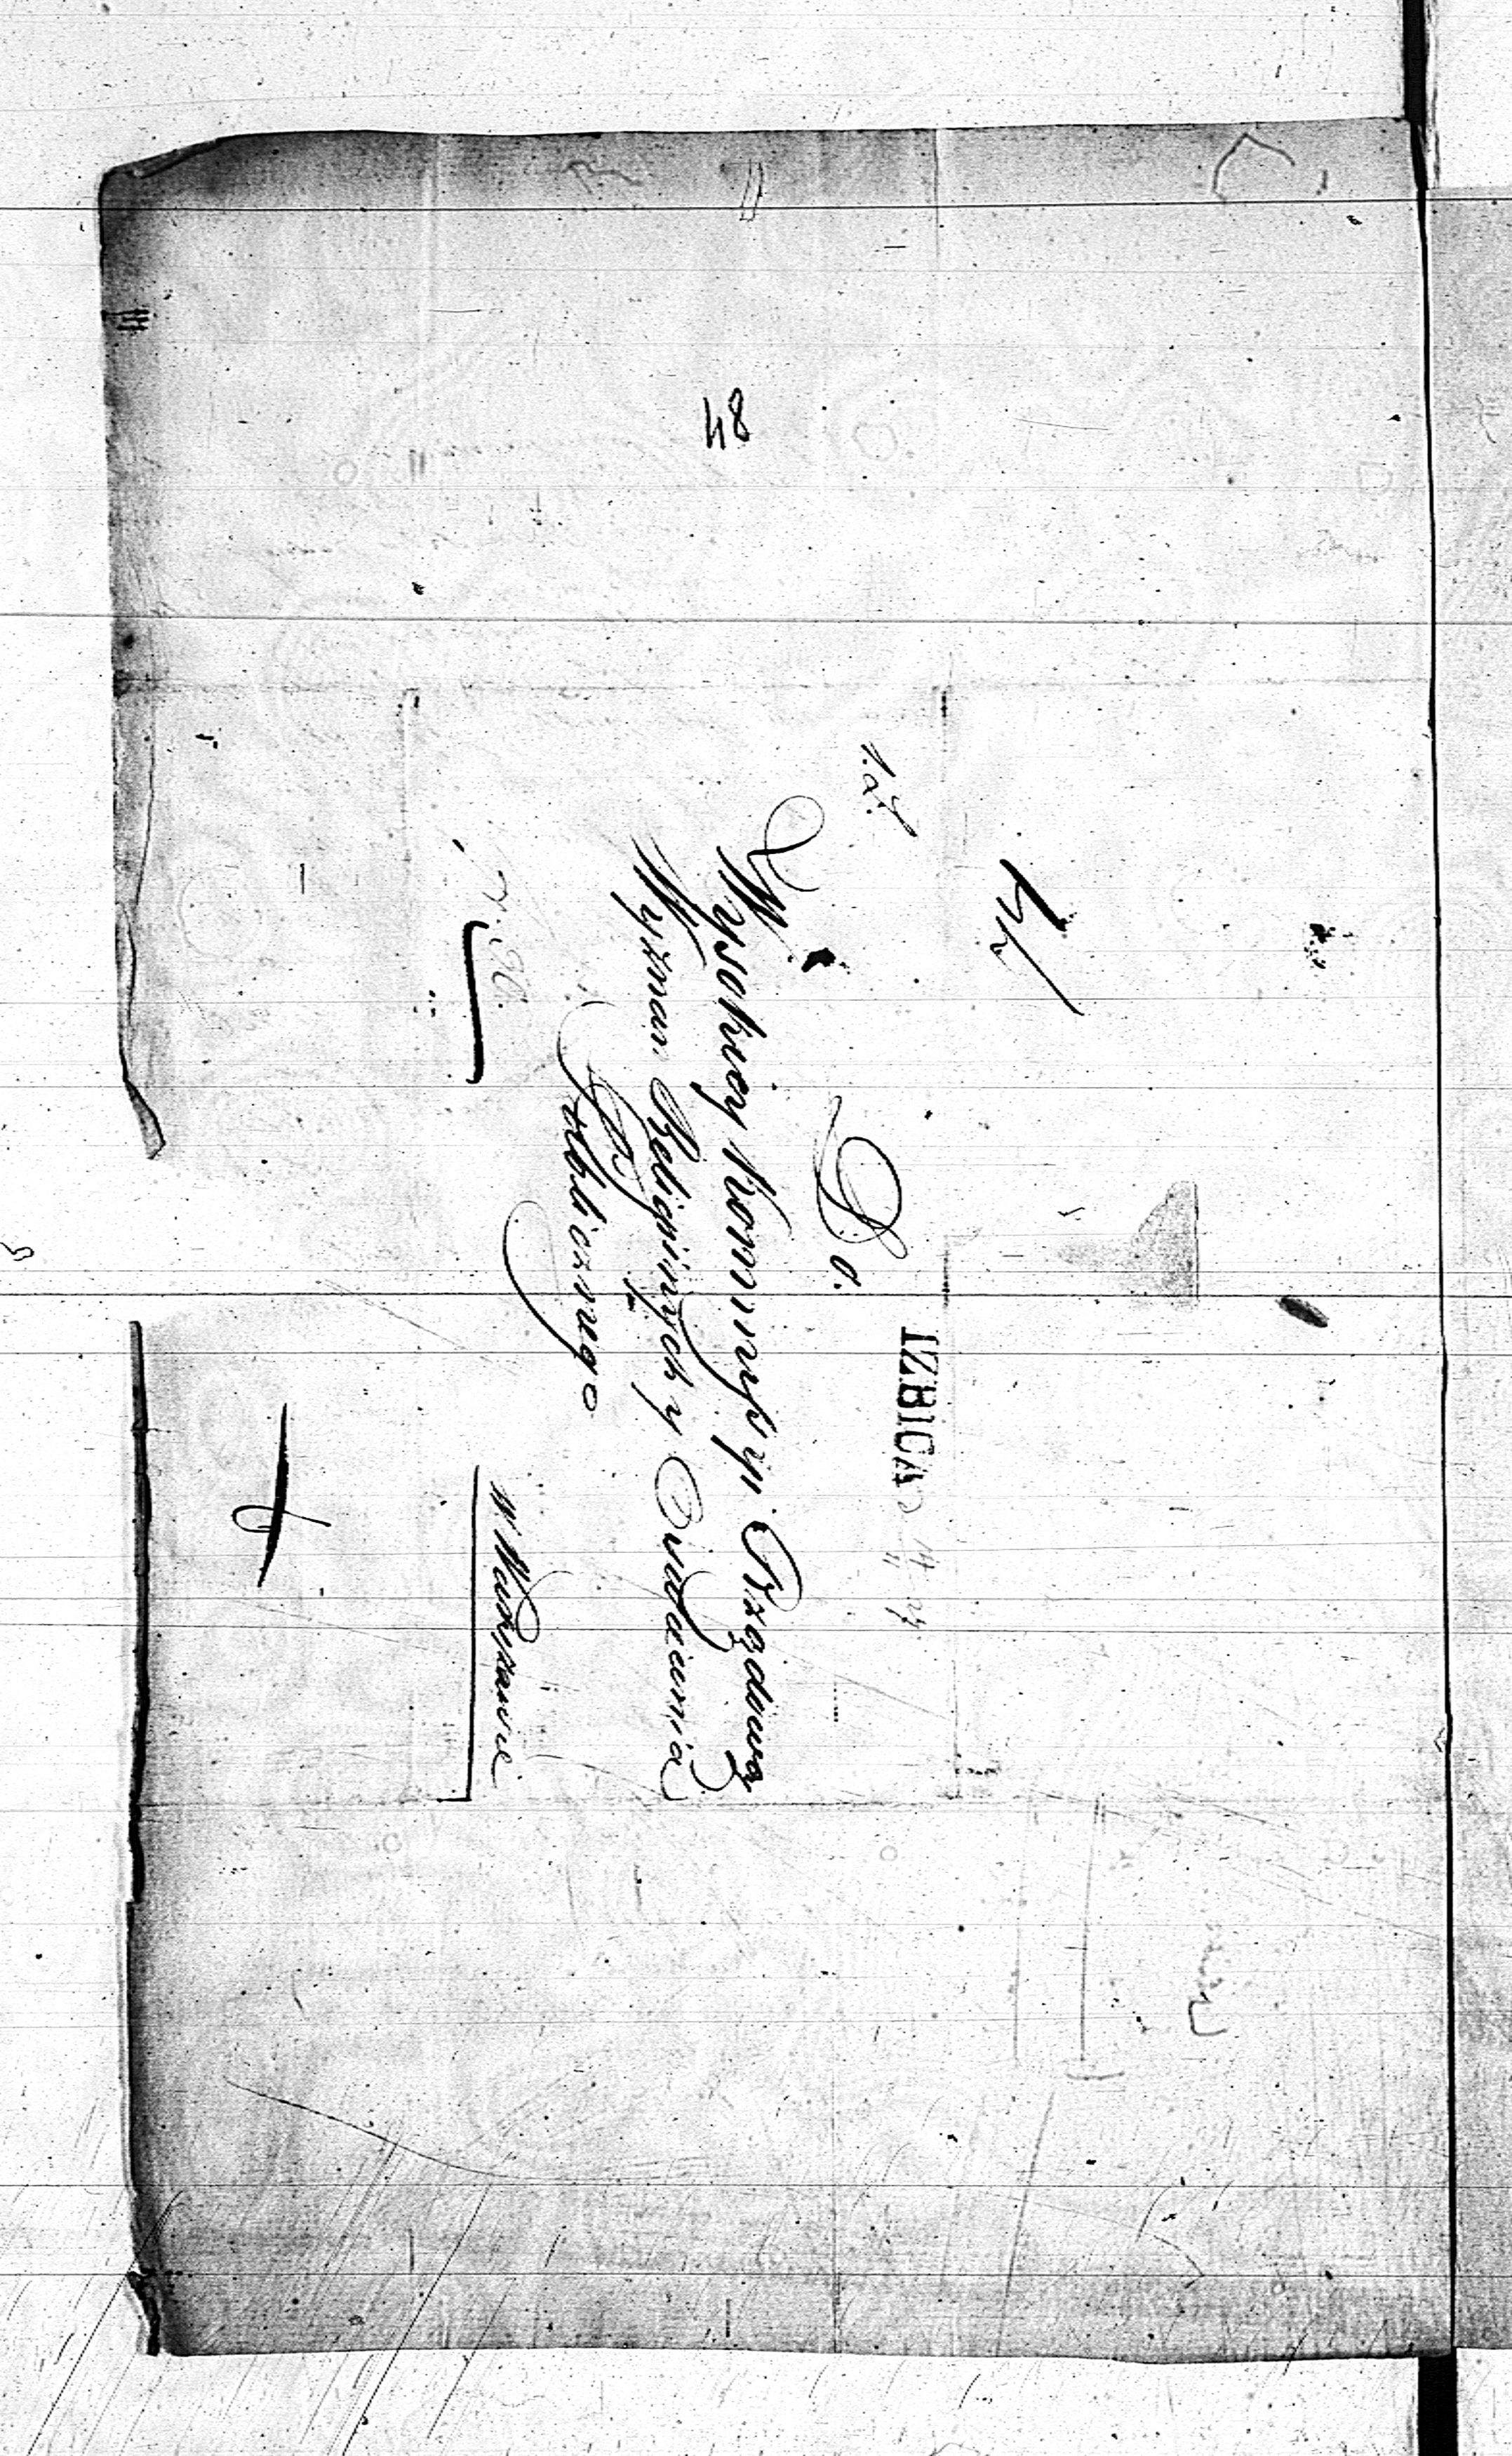 84
IZBICA
Do.
Wysokiey Kommissyi Rządowey
Wyznań Religiinych y Oświecenia
Publicznego
w Warszawie